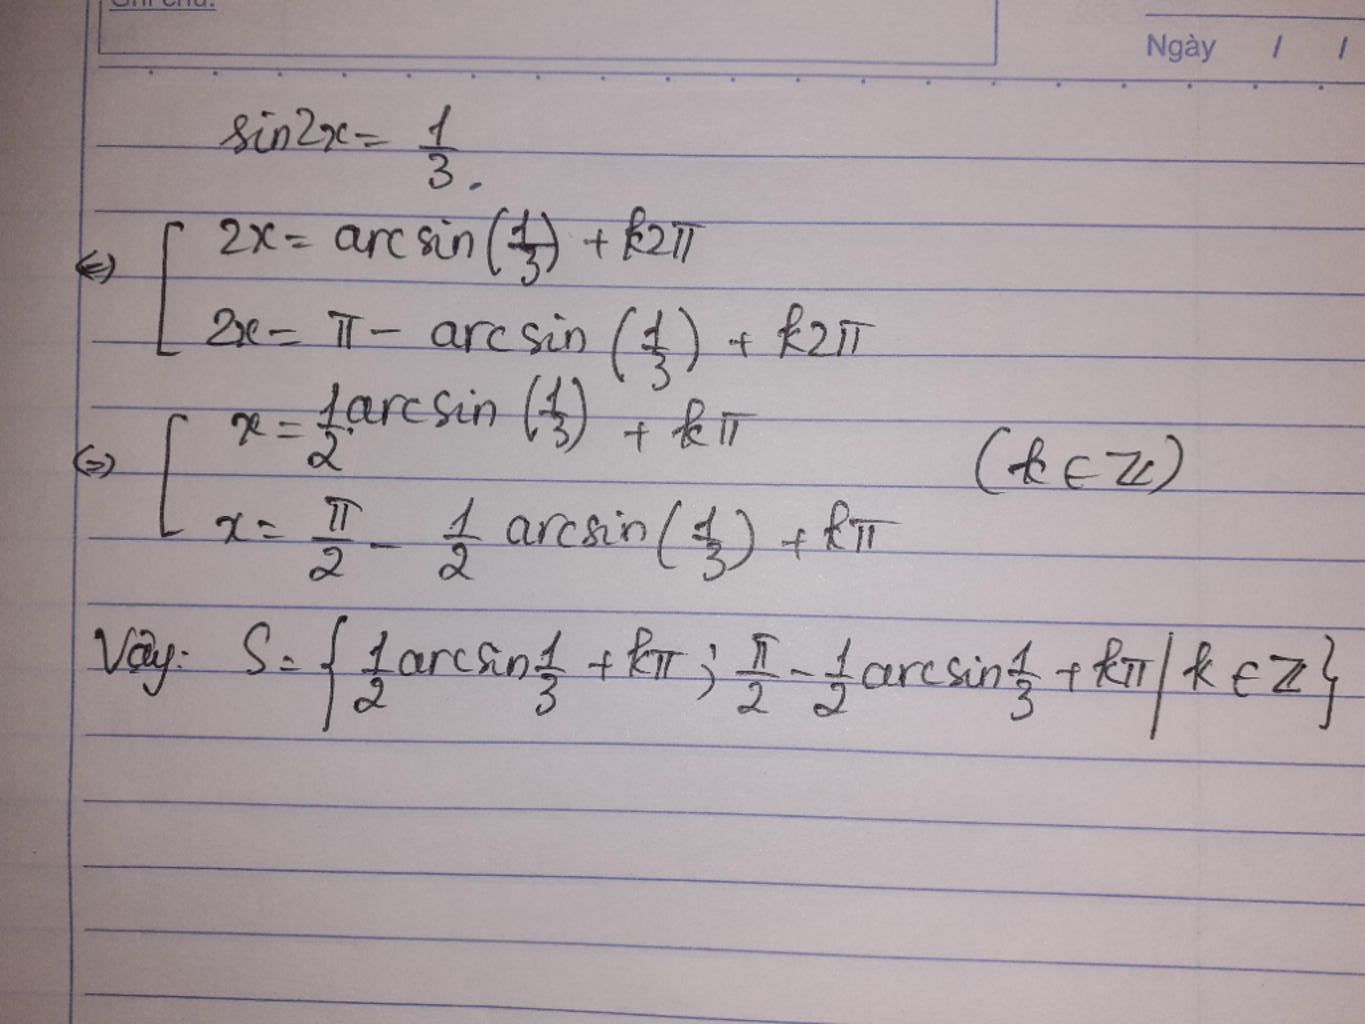 Ghi chú:
Ngày / /
sin2x = 1/3.
⇔ [ 2x = arcsin(1/3) + k2π
2x = π - arcsin(1/3) + k2π
⇔ [ x = 1/2 arcsin(1/3) + kπ
(k ∈ ℤ)
x = π/2 - 1/2 arcsin(1/3) + kπ
Vậy: S = { 1/2 arcsin 1/3 + kπ ; π/2 - 1/2 arcsin 1/3 + kπ | k ∈ ℤ }